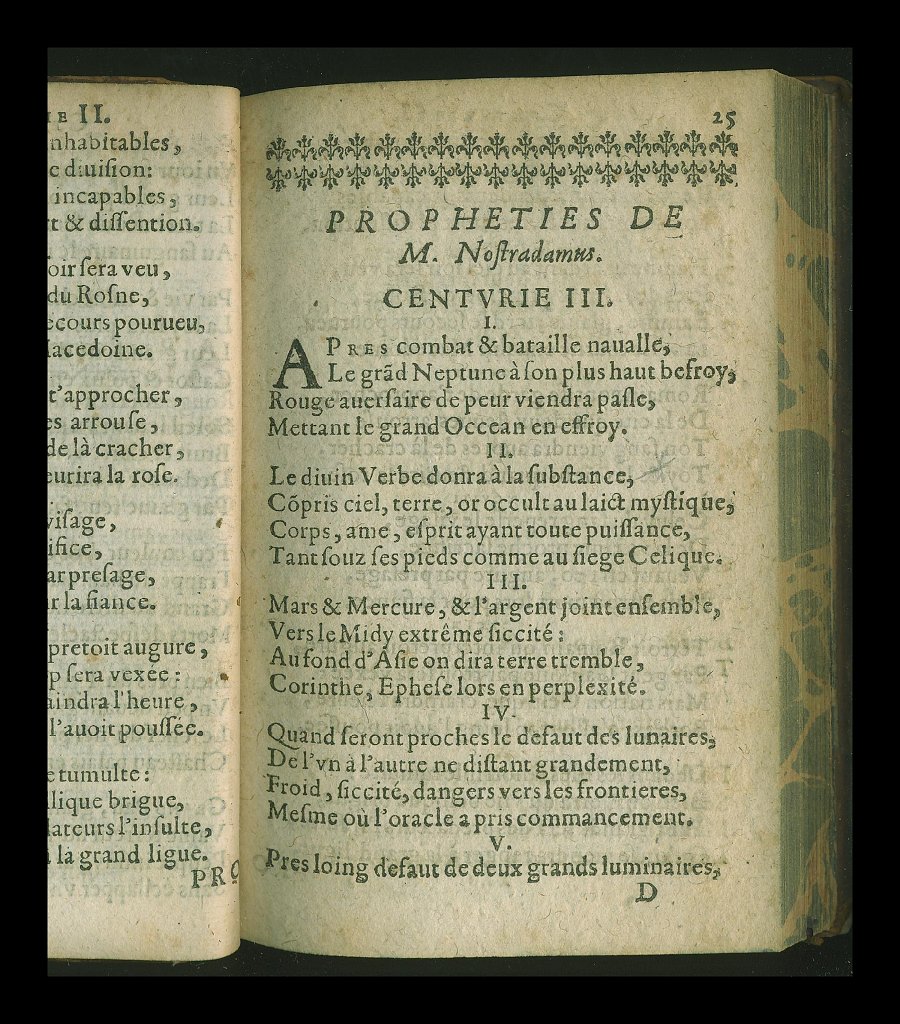 IE II.
nhabitables,
c diuiſion:
incapables,
t & diſſention.
oir ſera veu,
du Roſne,
ecours pourueu,
acedoine.
t'approcher,
es arrouſe,
de là cracher,
eurira la roſe.
viſage,
ifice,
ar preſage,
r la fiance.
pretoit augure,
p ſera vexée:
aindra l'heure,
l'auoit pouſſée.
e tumulte:
lique brigue,
lateurs l'inſulte,
la grand ligue.
PRO
25
PROPHETIES DE
M. Noſtradamus.
CENTVRIE III.
I.
APRES combat & bataille naualle,
Le grãd Neptune à ſon plus haut befroy,
Rouge auerſaire de peur viendra paſle,
Mettant le grand Occean en effroy.
II.
Le diuin Verbe donra à la ſubſtance,
Cõpris ciel, terre, or occult au laict myſtique,
Corps, ame, eſprit ayant toute puiſſance,
Tant ſouz ſes pieds comme au ſiege Celique.
III.
Mars & Mercure, & l'argent joint enſemble,
Vers le Midy extrême ſiccité:
Au fond d'Aſie on dira terre tremble,
Corinthe, Epheſe lors en perplexité.
IV.
Quand ſeront proches le defaut des lunaires,
De l'vn à l'autre ne diſtant grandement,
Froid, ſiccité, dangers vers les frontieres,
Meſme où l'oracle a pris commancement.
V.
Pres loing defaut de deux grands luminaires,
D